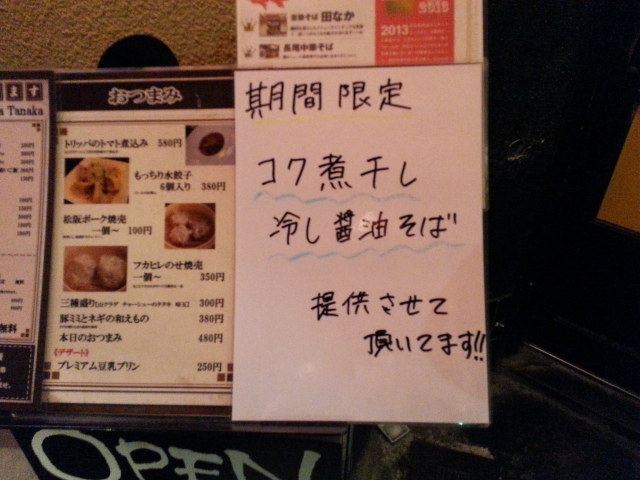 首都そば 田なか
長尾中華そば
2013
ます
Tanaka
無料
おつまみ
トリッパのトマト煮込み 580円
もっちり水餃子
6個入り 380円
松阪ポーク焼売
一個〜 100円
フカヒレのせ焼売
一個〜 350円
三種盛り 300円
豚ミミとネギの和えもの 380円
本日のおつまみ 480円
《デザート》
プレミアム豆乳プリン 250円
期間限定
コク煮干し
冷し醤油そば
提供させて
頂いてます!!
OPEN